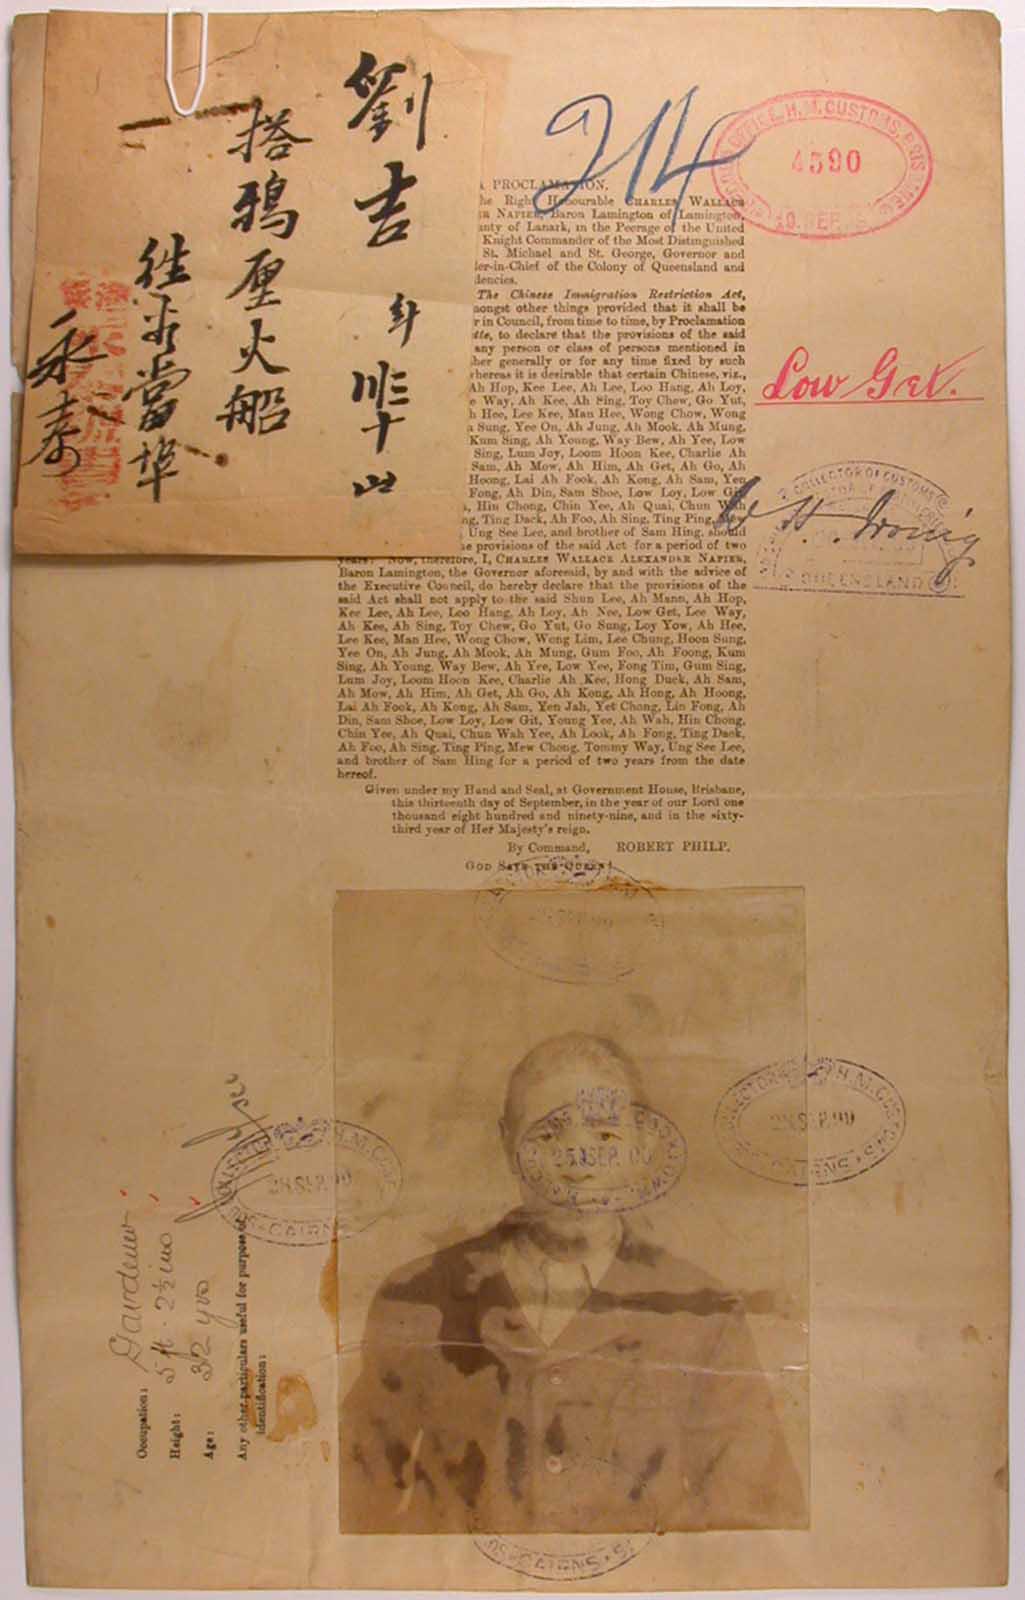 劉吉
年
搭鴉厘火船
往
當埠
永泰
214
H.M. CUSTOMS, BRISBANE
4590
Low Get.
COLLECTOR OF CUSTOMS
QUEENSLAND
PROCLAMATION.
he Right Honourable CHARLES WALLACE
NAPIER, Baron Lamington of Lamington,
unty of Lanark, in the Peerage of the United
Knight Commander of the Most Distinguished
St. Michael and St. George, Governor and
der-in-Chief of the Colony of Queensland and
dencies.
The Chinese Immigration Restriction Act,
mongst other things provided that it shall be
r in Council, from time to time, by Proclamation
tte, to declare that the provisions of the said
any person or class of persons mentioned in
her generally or for any time fixed by such
whereas it is desirable that certain Chinese, viz.,
Ah Hop, Kee Lee, Ah Lee, Loo Hang, Ah Loy,
e Way, Ah Kee, Ah Sing, Toy Chew, Go Yut,
h Hee, Lee Kee, Man Hee, Wong Chow, Wong
Sung, Yee On, Ah Jung, Ah Mook, Ah Mung,
Kum Sing, Ah Young, Way Bew, Ah Yee, Low
Sing, Lum Joy, Loom Hoon Kee, Charlie Ah
Sam, Ah Mow, Ah Him, Ah Get, Ah Go, Ah
Hoong, Lai Ah Fook, Ah Kong, Ah Sam, Yen
Fong, Ah Din, Sam Shoe, Low Loy, Low Git,
Hin Chong, Chin Yee, Ah Quai, Chun Wah
ng, Ting Dack, Ah Foo, Ah Sing, Ting Ping, Mew
Ung See Lee, and brother of Sam Hing, should
e provisions of the said Act for a period of two
years: Now, therefore, I, CHARLES WALLACE ALEXANDER NAPIER,
Baron Lamington, the Governor aforesaid, by and with the advice of
the Executive Council, do hereby declare that the provisions of the
said Act shall not apply to the said Shun Lee, Ah Mann, Ah Hop,
Kee Lee, Ah Lee, Loo Hang, Ah Loy, Ah Nee, Low Get, Lee Way,
Ah Kee, Ah Sing, Toy Chew, Go Yut, Go Sung, Loy Yow, Ah Hee,
Lee Kee, Man Hee, Wong Chow, Wong Lim, Lee Chung, Hoon Sung,
Yee On, Ah Jung, Ah Mook, Ah Mung, Gum Foo, Ah Foong, Kum
Sing, Ah Young, Way Bew, Ah Yee, Low Yee, Fong Tim, Gum Sing,
Lum Joy, Loom Hoon Kee, Charlie Ah Kee, Hong Duck, Ah Sam,
Ah Mow, Ah Him, Ah Get, Ah Go, Ah Kong, Ah Hong, Ah Hoong,
Lai Ah Fook, Ah Kong, Ah Sam, Yen Jah, Yet Chong, Lin Fong, Ah
Din, Sam Shoe, Low Loy, Low Git, Young Yee, Ah Wah, Hin Chong,
Chin Yee, Ah Quai, Chun Wah Yee, Ah Look, Ah Fong, Ting Dack,
Ah Foo, Ah Sing, Ting Ping, Mew Chong, Tommy Way, Ung See Lee,
and brother of Sam Hing for a period of two years from the date
hereof.
Given under my Hand and Seal, at Government House, Brisbane,
this thirteenth day of September, in the year of our Lord one
thousand eight hundred and ninety-nine, and in the sixty-
third year of Her Majesty's reign.
By Command, ROBERT PHILP.
GOD SAVE THE QUEEN!
COLLECTOR OF H.M. CUSTOMS CAIRNS
28 SEP. 00
COOKTOWN
25 SEP. 00
COLLECTOR OF H.M. CUSTOMS CAIRNS
28 SEP. 00
CAIRNS
Occupation: Gardener
Height: 5 ft. 2½ ins
Age: 32 yrs
Any other particulars useful for purpose of
identification: